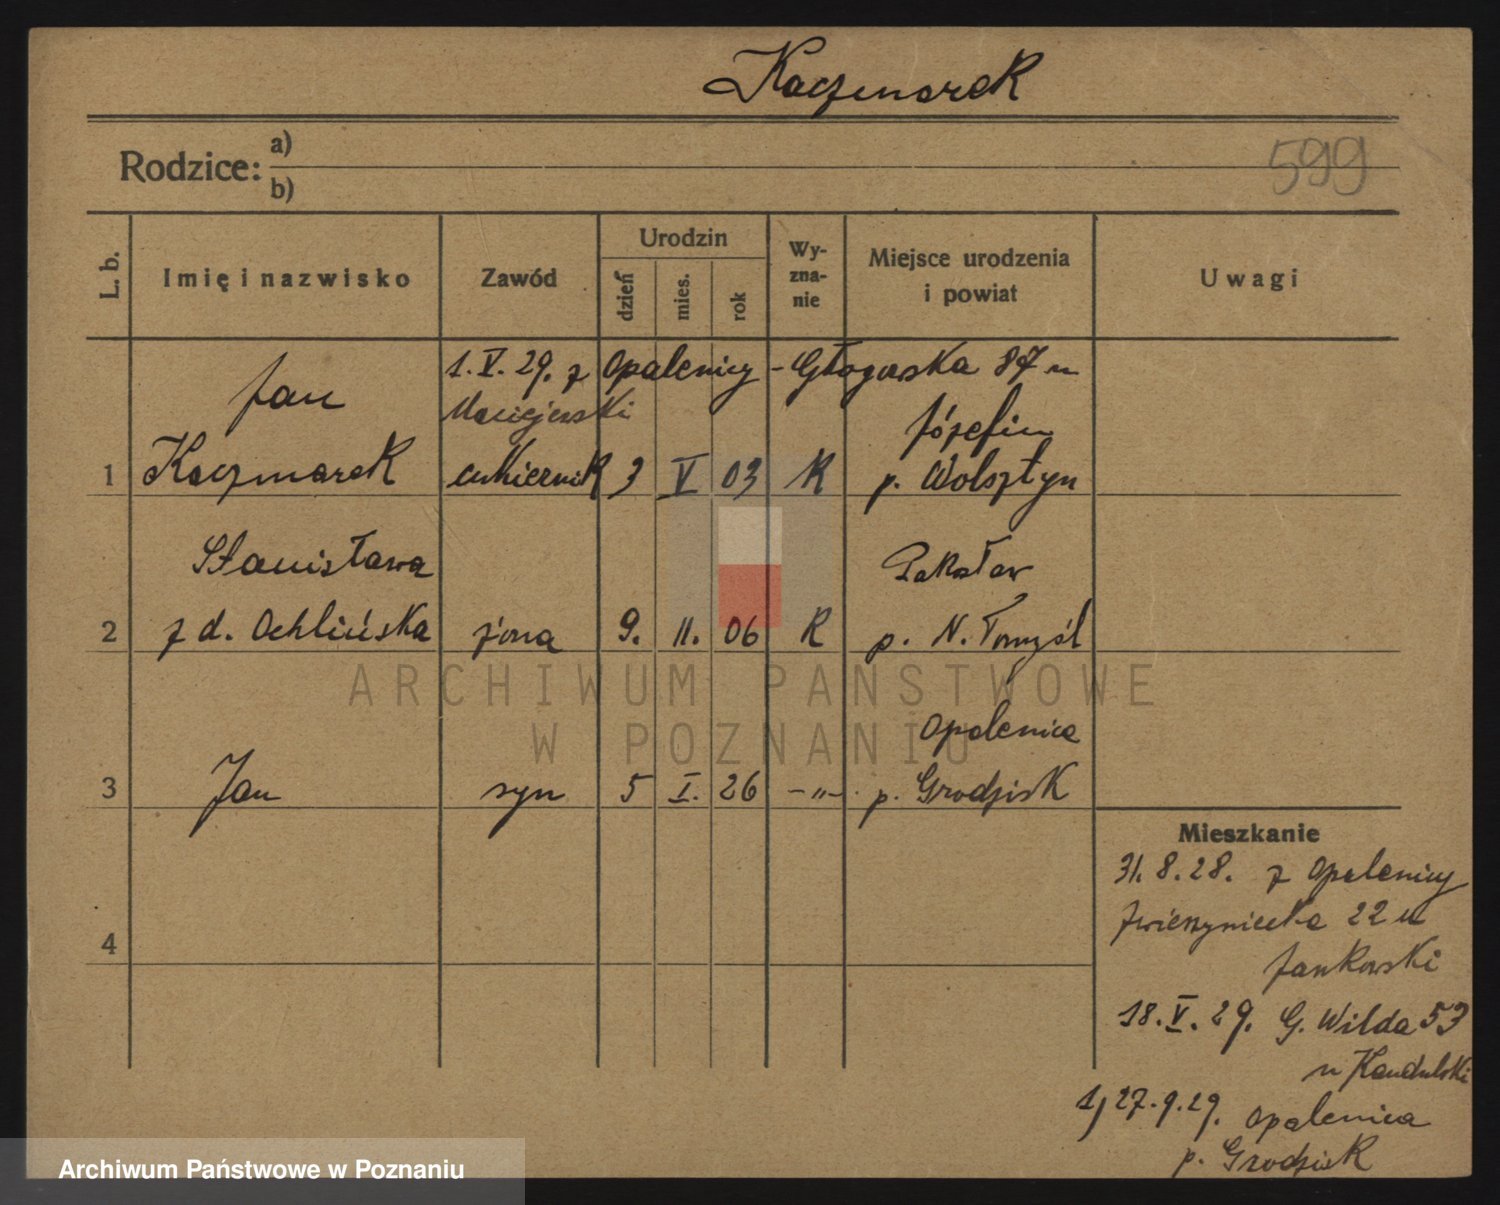 Kaczmarek
Rodzice: a)
b)
599
L. b.
Imię i nazwisko
Zawód
Urodzin
dzień
mies.
rok
Wy-
zna-
nie
Miejsce urodzenia
i powiat
Uwagi
1.V.29. z Opalenicy - Głogowska 87 u
Maciejewski
Jan
Józefin
1 Kaczmarek cukiernik 3 V 03 K p. Wolsztyn
Stanisława Pakosław
2 z d. Ochlińska żona 9. II. 06 K p. N. Tomyśl
Opalenica
3 Jan syn 5 I. 26 -"- p. Grodzisk
4
Mieszkanie
31.8.28. z Opalenicy
Zwierzyniecka 22 u
Jankowski
18.V.29. G. Wilda 53
u Kandulski
1) 27.9.29. Opalenica
p. Grodzisk
ARCHIWUM PAŃSTWOWE
W POZNANIU
Archiwum Państwowe w Poznaniu